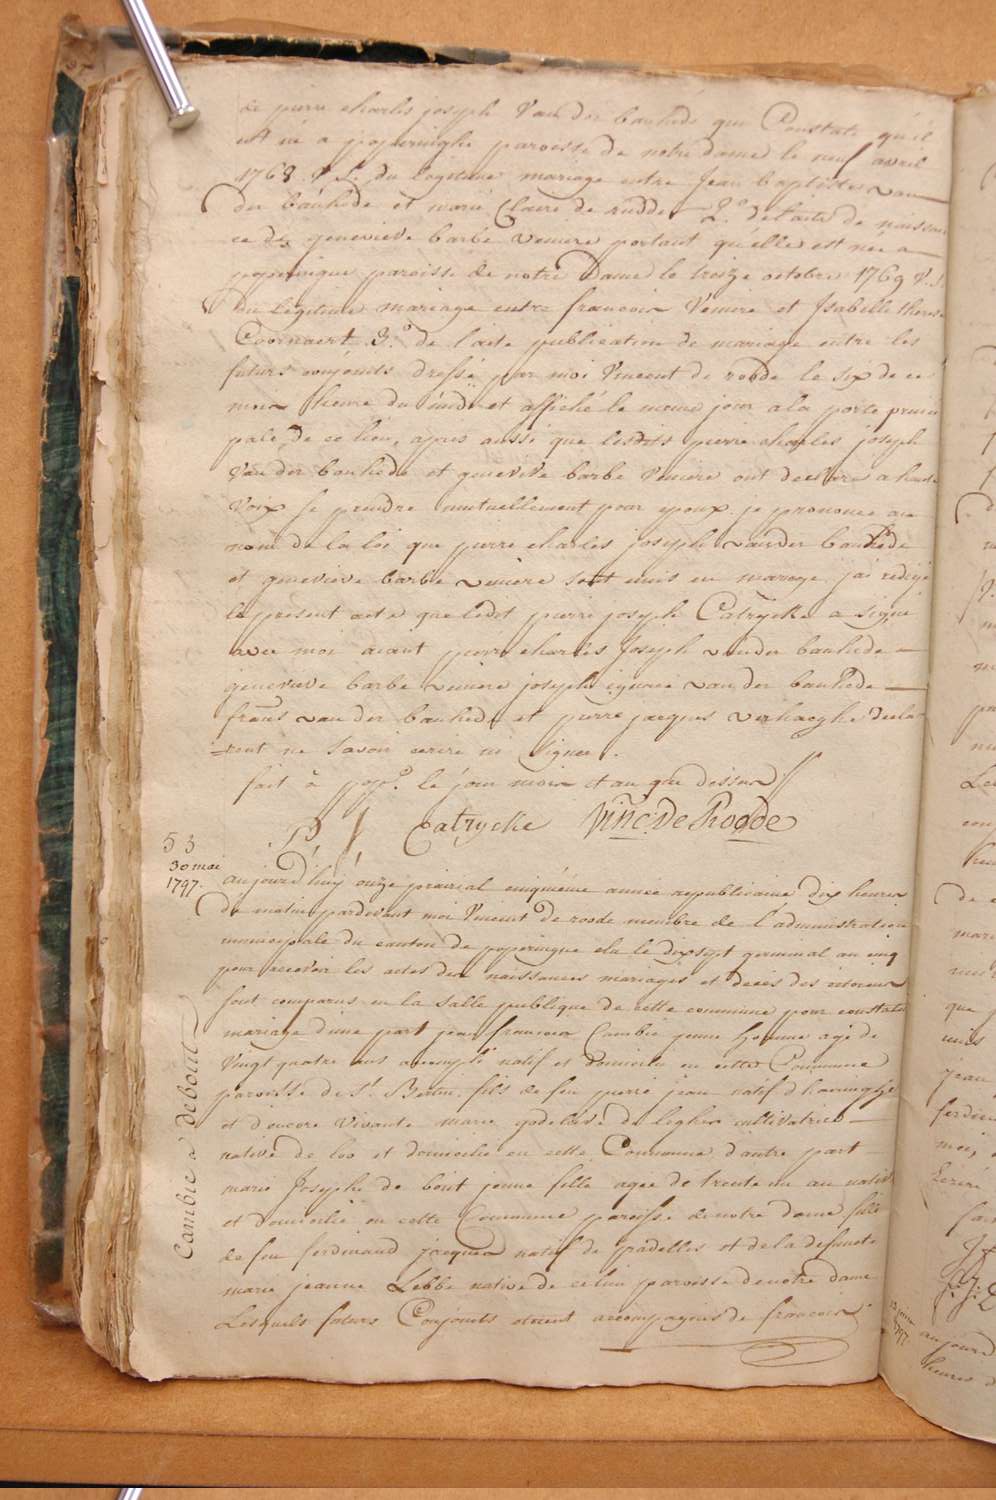 de pierre charles joseph Van der bauhede qui Constate qu'il
est né a poperinghe paroisse de notre dame le neuf avril
1768 V.S. du legitime mariage entre Jean baptiste van
der bauhede et marie Claire de rudder 2.° de l'acte de naissan
ce de genevieve barbe venière portant qu'elle est née a
poperingue paroisse de notre Dame le treize octobre 1769 V.S.
du legitime mariage entre francois Veniere et Isabelle therese
Coornaert 3.° de l'acte publication de mariage entre les
futurs conjoints dressé par moi Vincent de roode le six de ce
mois heure du midi et affiché le meme jour a la porte princi
pale de ce lieu, apres aussi que lesdits pierre charles joseph
Van der bauhede et genevieve barbe Veniere ont declaré a haute
Voix se prendre mutuellement pour epoux. je prononce au
nom de la loi que pierre charles joseph van der bauhede
et genevieve barbe venière sont unis en mariage. j'ai redigé
le present acte que ledit pierre joseph Catrycke a signé
avec moi aiant pierre charles Joseph van der bauhede
genevieve barbe veniere joseph ignace van der bauhede
frans van der bauhede et pierre jacques verhaeghe decla
=rent ne savoir ecrire ni signer.
fait à pop.e le jour mois et an que dessus
P J Catrycke Vinc: De Roode
53
30 mai
1797.
aujourd'huy onze prairial cinquième année republicaine dix heures
du matin pardevant moi Vincent de roode membre de l'administration
municipale du canton de poperingue elu le dix sept germinal an cinq
pour recevoir les actes des naissances mariages et deces des citoiens
sont comparus en la salle publique de cette commune pour constater
mariage d'une part jean francois Cambie jeune homme agé de
Vingt quatre ans accompli natif et domicilie en cette Commune
paroisse de St. Bertin. fils de feu pierre jean natif d'haringhe
et d'encore vivante marie godelieve de cultivatrice
native de loo et domicilie en cette Commune d'autre part
marie Josephe de bout jeune fille agée de trente un an native
et domicilié en cette Commune paroisse de notre dame fille
de feu ferdinand jacques natif de pradelles et de la defuncte
marie jeanne Lebbe native de ce lieu paroisse de notre dame
Lesquels futurs Conjoints etoient accompagnés de francois
Cambie a debout